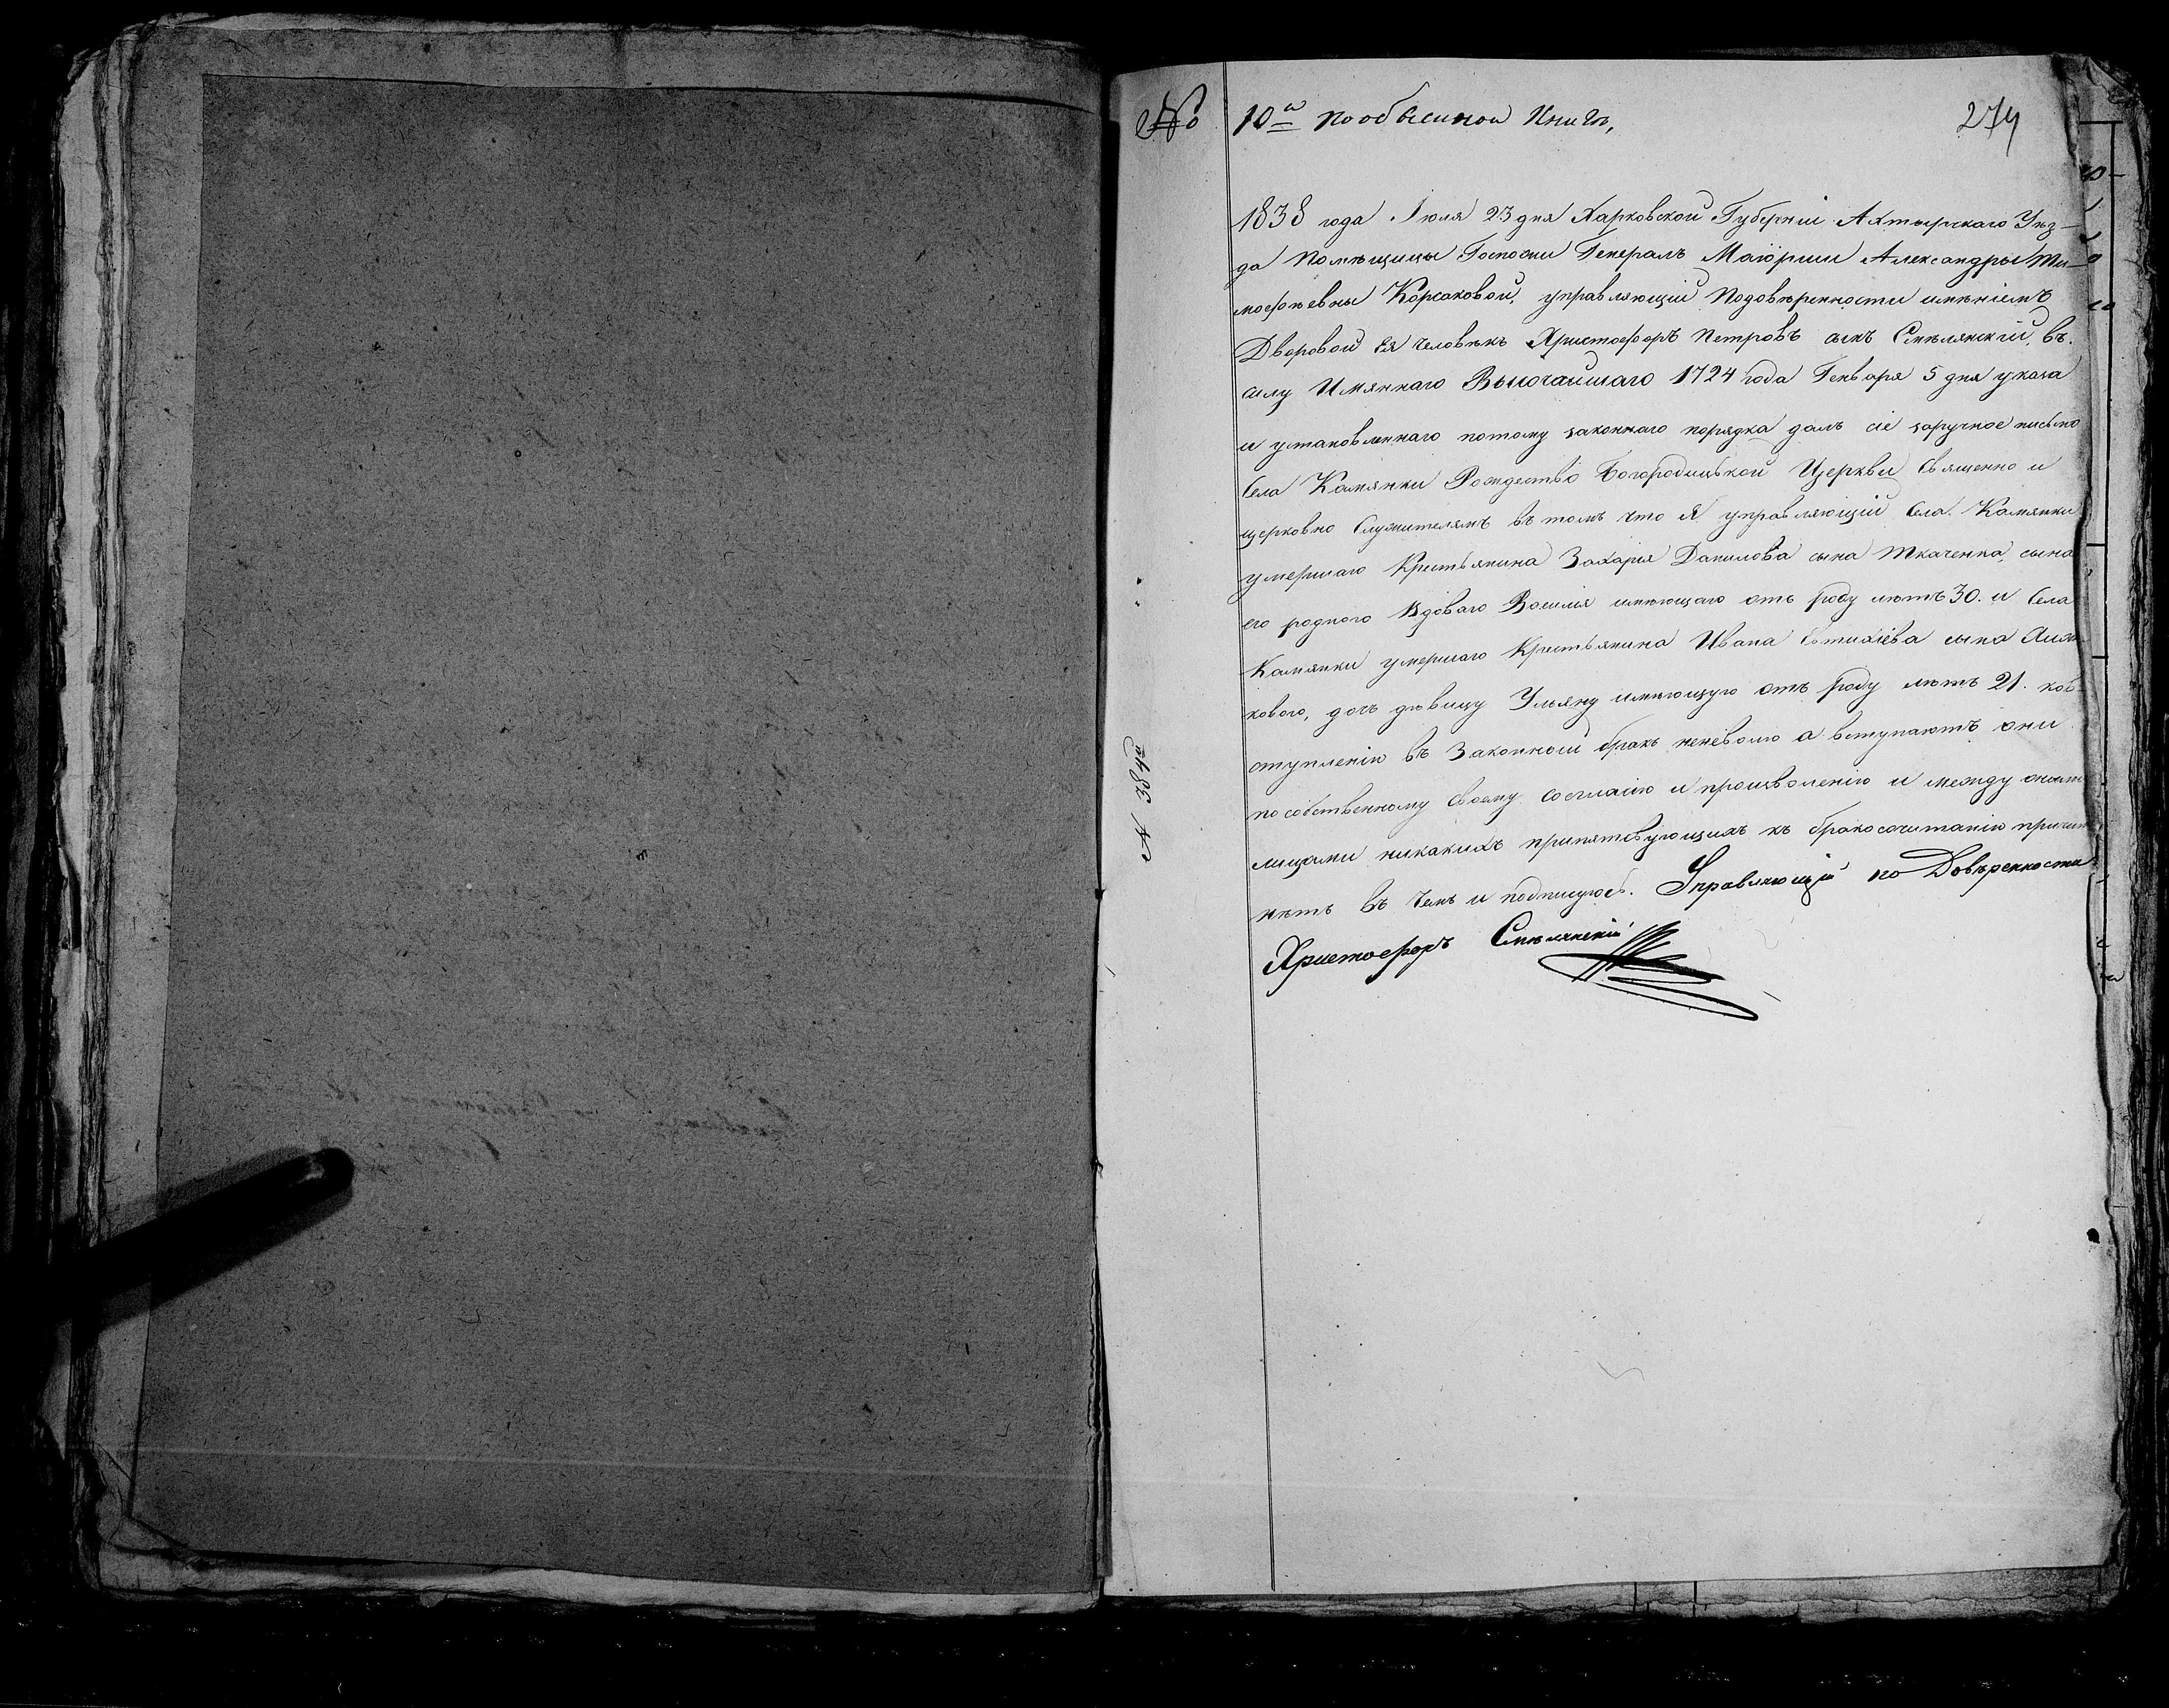 № 10й по обыскной книгѣ,
274
1838 года Іюля 23 дня Харковской Губерніи Ахтырскаго Уѣз-
да Помѣщицы Госпожи Генералъ Маіорши Александры Ти-
мофѣевны Корсаковой, управляющій подовѣренности имѣніемъ
Дворовой Ея человѣкъ Христофоръ Петровъ сынъ Смѣлянскій, въ
силу Имяннаго Высочайшаго 1724 года Генваря 5 дня указа
и установленнаго потому законнаго порядка далъ сіе заручное письмо
Села Камянки Рождество Богородицькой Церкви Священно и
церковно Служителямъ въ томъ что я управляющій Села Камянки
умершаго Крестьянина Захарія Данилова сына Ткаченка, сына
его роднаго Вдоваго Василія имѣющаго отъ роду лѣтъ 30. и Села
Камянки умершаго Крестьянина Ивана Евтихіева сына
коваго, дочъ дѣвицу Ульяну имѣющую отъ роду лѣтъ 21. ков
ступленію въ Законный бракъ неневолю а вступаютъ они
по собственному своему согласію и произволенію и между оными
лицами никакихъ припятствующихъ къ бракосочитанію причинъ
нѣтъ въ чемъ и подпишуюсь. Управляющій по Довѣренности
Христофоръ Смѣлянскій